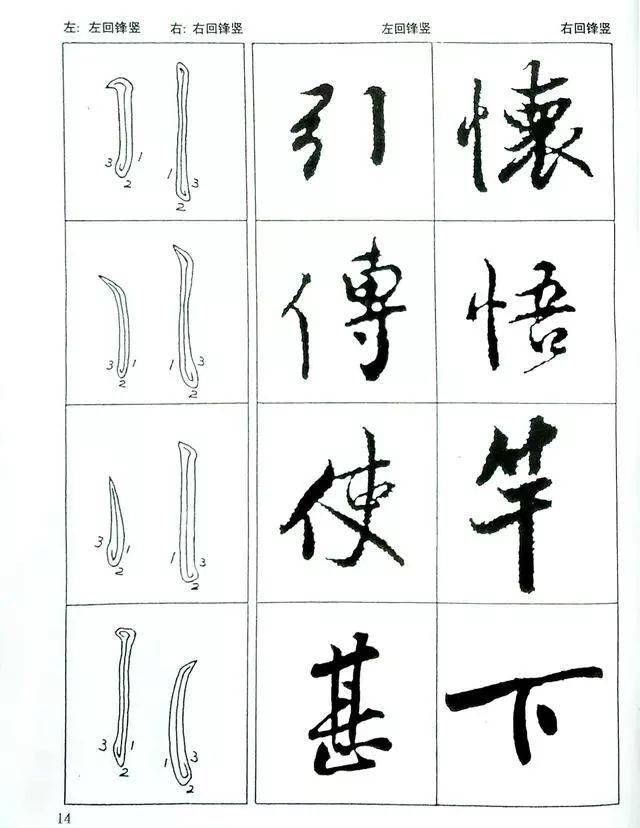 左: 左回锋竖 右: 右回锋竖 左回锋竖 右回锋竖
3 1 1 3
2 2
引 懷
3 1 1 3
2 2
傳 悟
3 1 1 3
2 2
使 竿
3 1 1 3
2 2
甚 下
14